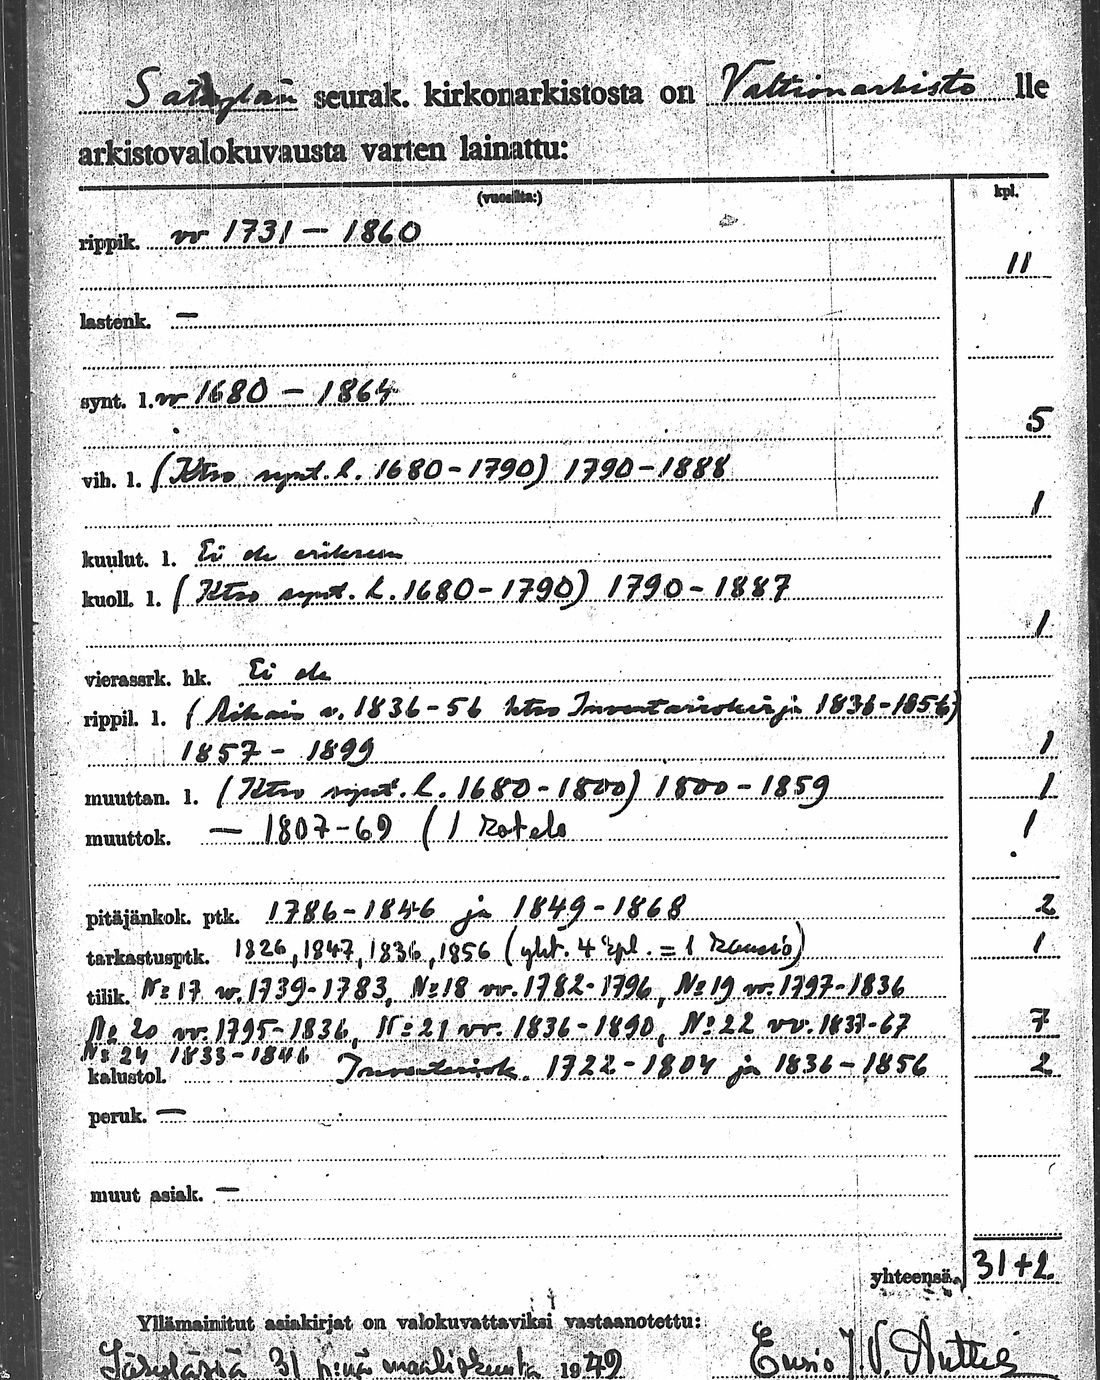 Säkylän seurak. kirkonarkistosta on Valtionarkisto lle
arkistovalokuvausta varten lainattu:
(vuosilta:) kpl.
rippik. vv 1731 – 1860
11
lastenk. –
synt. l. vv 1680 – 1864
5
vih. l. (Ktso synt. l. 1680-1790) 1790-1888
1
kuulut. l. Ei ole erikseen
kuoll. l. (Ktso synt. l. 1680-1790) 1790-1887
1
vierassrk. hk. Ei ole
rippil. l. (Aikais v. 1836-56 ktso Inventariokirja 1836-1856)
1857 - 1899 1
muuttan. l. (Ktso synt. l. 1680-1800) 1800-1859 1
muuttok. – 1807-69 (1 kotelo 1
pitäjänkok. ptk. 1786-1846 ja 1849-1868 2
tarkastusptk. 1826, 1847, 1836, 1856 (yht. 4 kpl. = 1 kansio) 1
tilik. No 17 vv. 1739-1783, No 18 vv. 1782-1796, No 19 vv. 1797-1836
No 20 vv. 1795-1836, No 21 vv. 1836-1890, No 22 vv. 1837-67 7
No 24 1833-1846
kalustol. Inventariok. 1722-1804 ja 1836-1856 2
peruk. –
muut asiak. –
yhteensä 31+2
Yllämainitut asiakirjat on valokuvattaviksi vastaanotettu:
Säkylässä 31 p:nä maaliskuuta 1949 Ensio J.V.